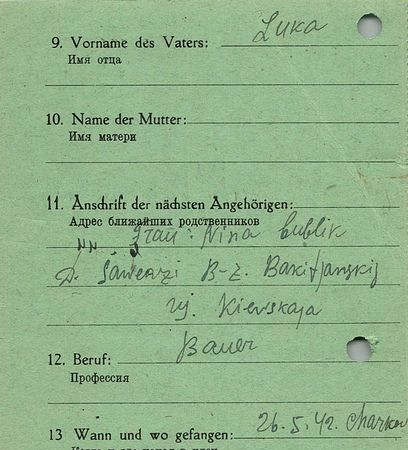 9. Vorname des Vaters: Luka
Имя отца
10. Name der Mutter:
Имя матери
11. Anschrift der nächsten Angehörigen:
Адрес ближайших родственников
Frau: Nina Bublik
D. B-Z.
Kiewskaja
12. Beruf: Bauer
Профессия
13 Wann und wo gefangen: 26.5.42. Charkow